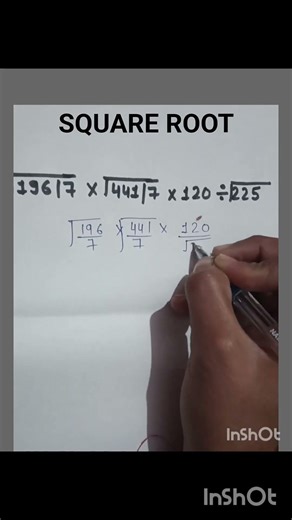 SQUARE ROOT
√196/7 × √441/7 × 120 ÷ √225
√196/7 × √441/7 × 120/√
InShOt
InShOt